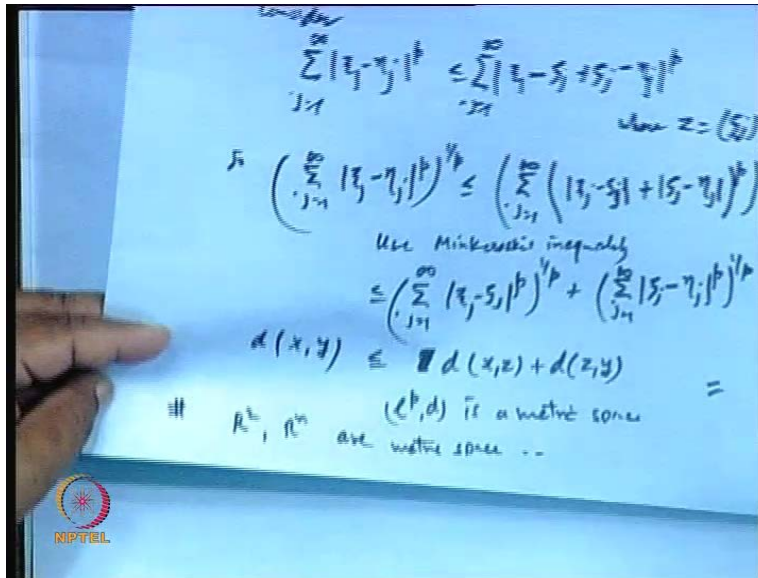 Consider
∑_{j=1}^{∞} |ξ_j - η_j|^p ≤ ∑_{j=1}^{∞} |ξ_j - ζ_j + ζ_j - η_j|^p
where z = (ζ_j)
So (∑_{j=1}^{∞} |ξ_j - η_j|^p)^{1/p} ≤ (∑_{j=1}^{∞} (|ξ_j - ζ_j| + |ζ_j - η_j|)^p)
Use Minkowski's inequality
≤ (∑_{j=1}^{∞} |ξ_j - ζ_j|^p)^{1/p} + (∑_{j=1}^{∞} |ζ_j - η_j|^p)^{1/p}
d(x,y) ≤ d(x,z) + d(z,y) =
(l^p, d) is a metric space
# R^2, R^n are metric space ..
NPTEL